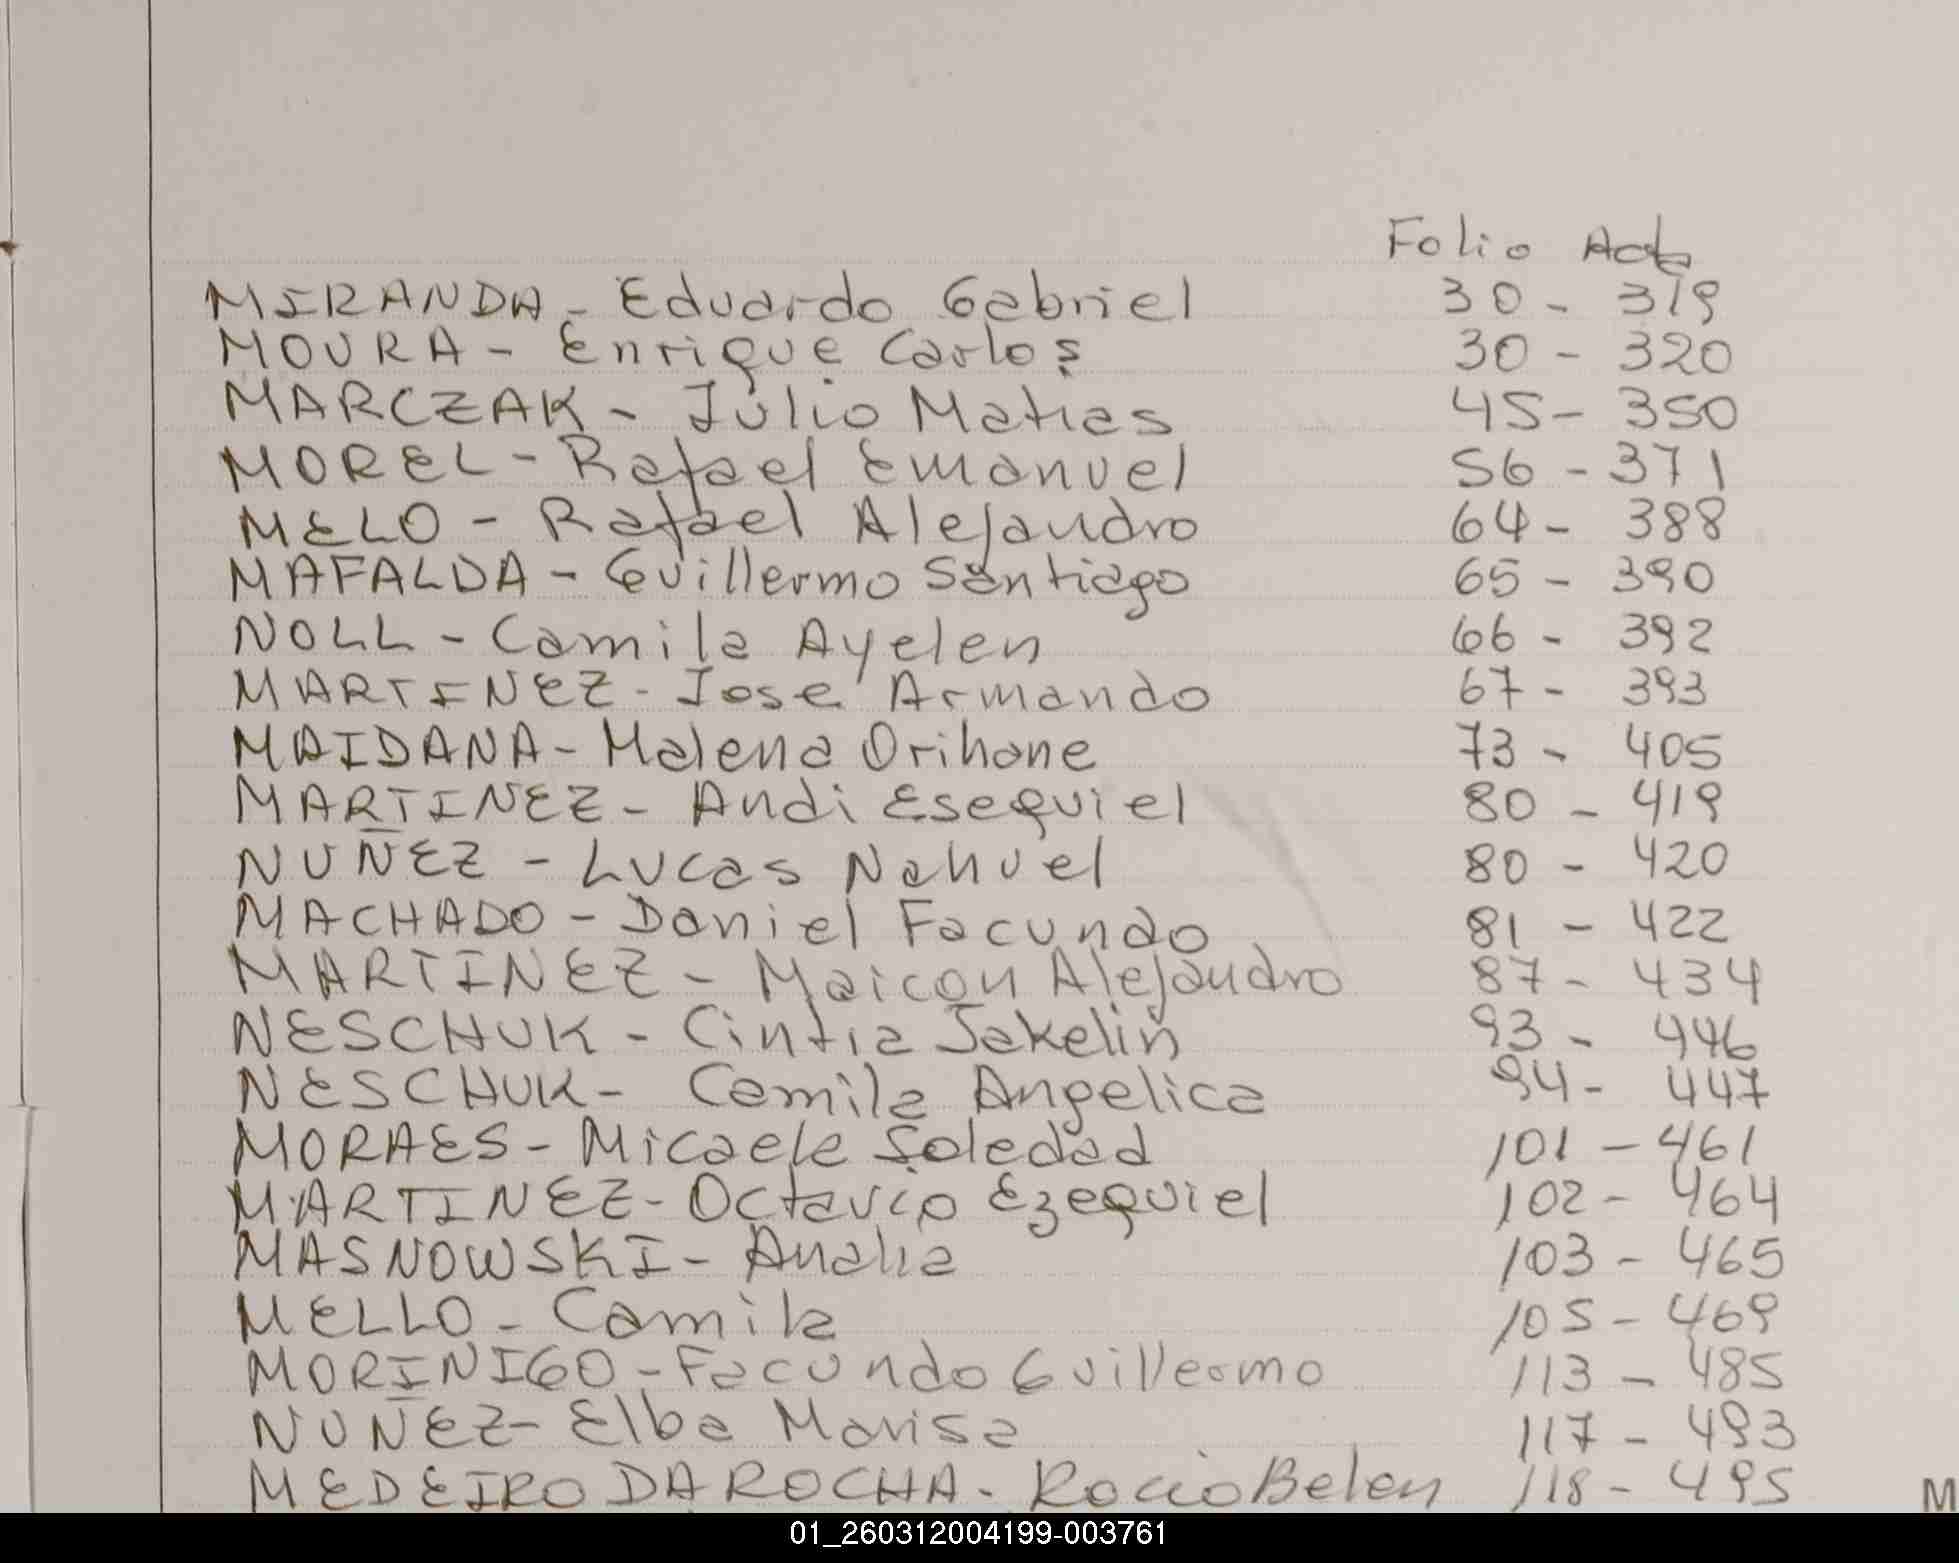 Folio Acta
MIRANDA - Eduardo Gabriel 30 - 319
MOURA - Enrique Carlos 30 - 320
MARCZAK - Julio Matias 45 - 350
MOREL - Rafael Emanuel 56 - 371
MELO - Rafael Alejandro 64 - 388
MAFALDA - Guillermo Santiago 65 - 390
NOLL - Camila Ayelen 66 - 392
MARTINEZ - Jose Armando 67 - 393
MAIDANA - Malena Orihane 73 - 405
MARTINEZ - Andi Esequiel 80 - 419
NUÑEZ - Lucas Nahuel 80 - 420
MACHADO - Daniel Facundo 81 - 422
MARTINEZ - Maicon Alejandro 87 - 434
NESCHUK - Cintia Jakelin 93 - 446
NESCHUK - Camila Angelica 94 - 447
MORAES - Micaela Soledad 101 - 461
MARTINEZ - Octavio Ezequiel 102 - 464
MASNOWSKI - Analia 103 - 465
MELLO - Camila 105 - 469
MORINIGO - Facundo Guillermo 113 - 485
NUÑEZ - Elba Marisa 117 - 493
MEDEIRO DA ROCHA - Rocio Belen 118 - 495
M
01_260312004199-003761